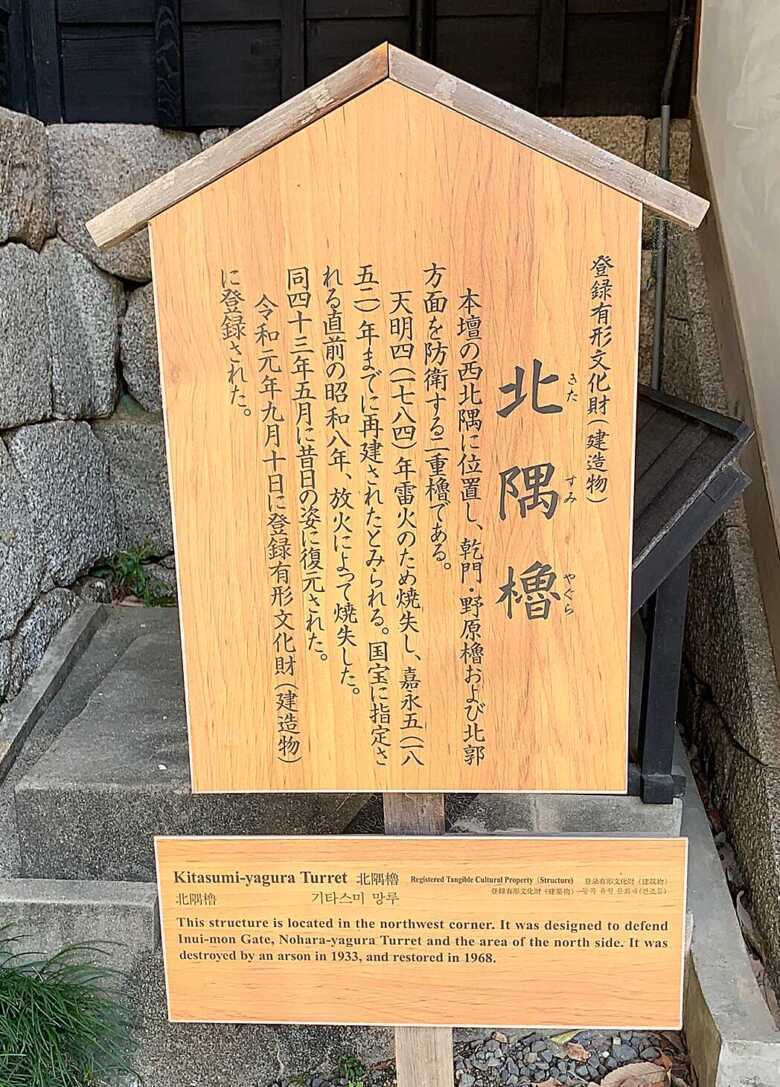 登録有形文化財(建造物)
北隅櫓
きた すみ やぐら
本壇の西北隅に位置し、乾門・野原櫓および北郭
方面を防衛する二重櫓である。
天明四(一七八四)年雷火のため焼失し、嘉永五(一八
五二)年までに再建されたとみられる。国宝に指定さ
れる直前の昭和八年、放火によって焼失した。
同四十三年五月に昔日の姿に復元された。
令和元年九月十日に登録有形文化財(建造物)
に登録された。
Kitasumi-yagura Turret 北隅櫓 Registered Tangible Cultural Property (Structure)
北隅櫓 기타스미 망루
This structure is located in the northwest corner. It was designed to defend
Inui-mon Gate, Nohara-yagura Turret and the area of the north side. It was
destroyed by an arson in 1933, and restored in 1968.